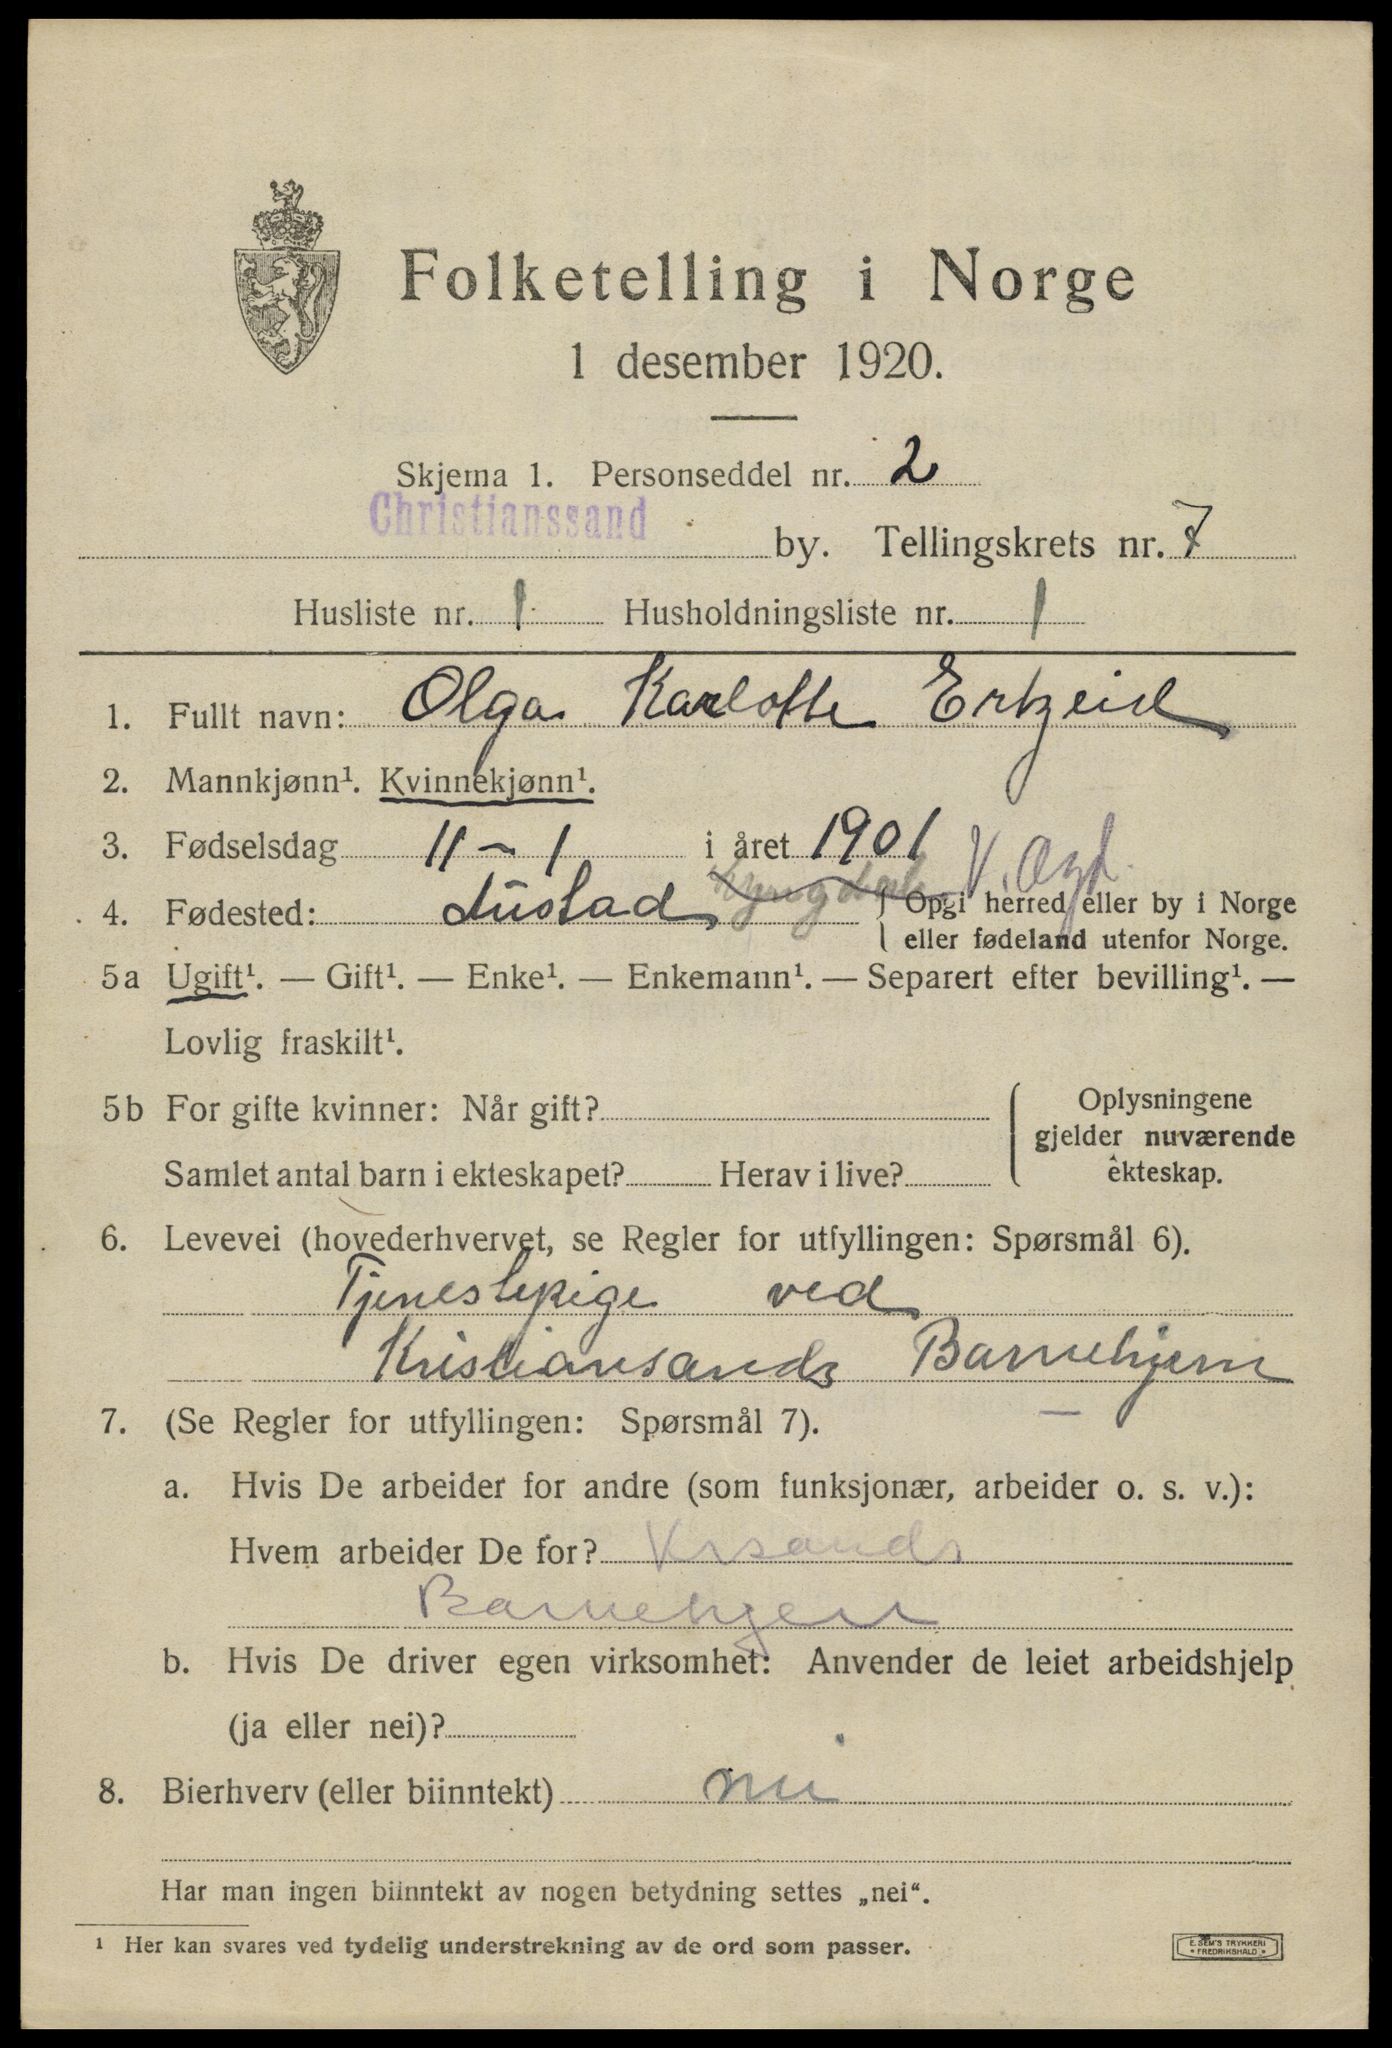 Folketelling i Norge
1 desember 1920.
Skjema 1. Personseddel nr. 2
Christianssand by. Tellingskrets nr. 7
Husliste nr. 1 Husholdningsliste nr. 1
1. Fullt navn: Olga Karlotte Erkzeid
2. Mannkjønn¹. Kvinnekjønn¹.
3. Fødselsdag 11 - 1 i året 1901
4. Fødested: Lústad V. Agd. { Opgi herred eller by i Norge
eller fødeland utenfor Norge.
5a Ugift¹. — Gift¹. — Enke¹. — Enkemann¹. — Separert efter bevilling¹. —
Lovlig fraskilt¹.
5b For gifte kvinner: Når gift? { Oplysningene
gjelder nuværende
Samlet antal barn i ekteskapet? Herav i live? ekteskap.
6. Levevei (hovederhvervet, se Regler for utfyllingen: Spørsmål 6).
Tjenestepige ved
Kristiansands Barnehjem
7. (Se Regler for utfyllingen: Spørsmål 7).
a. Hvis De arbeider for andre (som funksjonær, arbeider o. s. v.):
Hvem arbeider De for? Krsands
Barnehjem
b. Hvis De driver egen virksomhet: Anvender de leiet arbeidshjelp
(ja eller nei)?
8. Bierhverv (eller biinntekt) nei
Har man ingen biinntekt av nogen betydning settes „nei“.
¹ Her kan svares ved tydelig understrekning av de ord som passer.
E. SEM'S TRYKKERI
• FREDRIKSHALD •